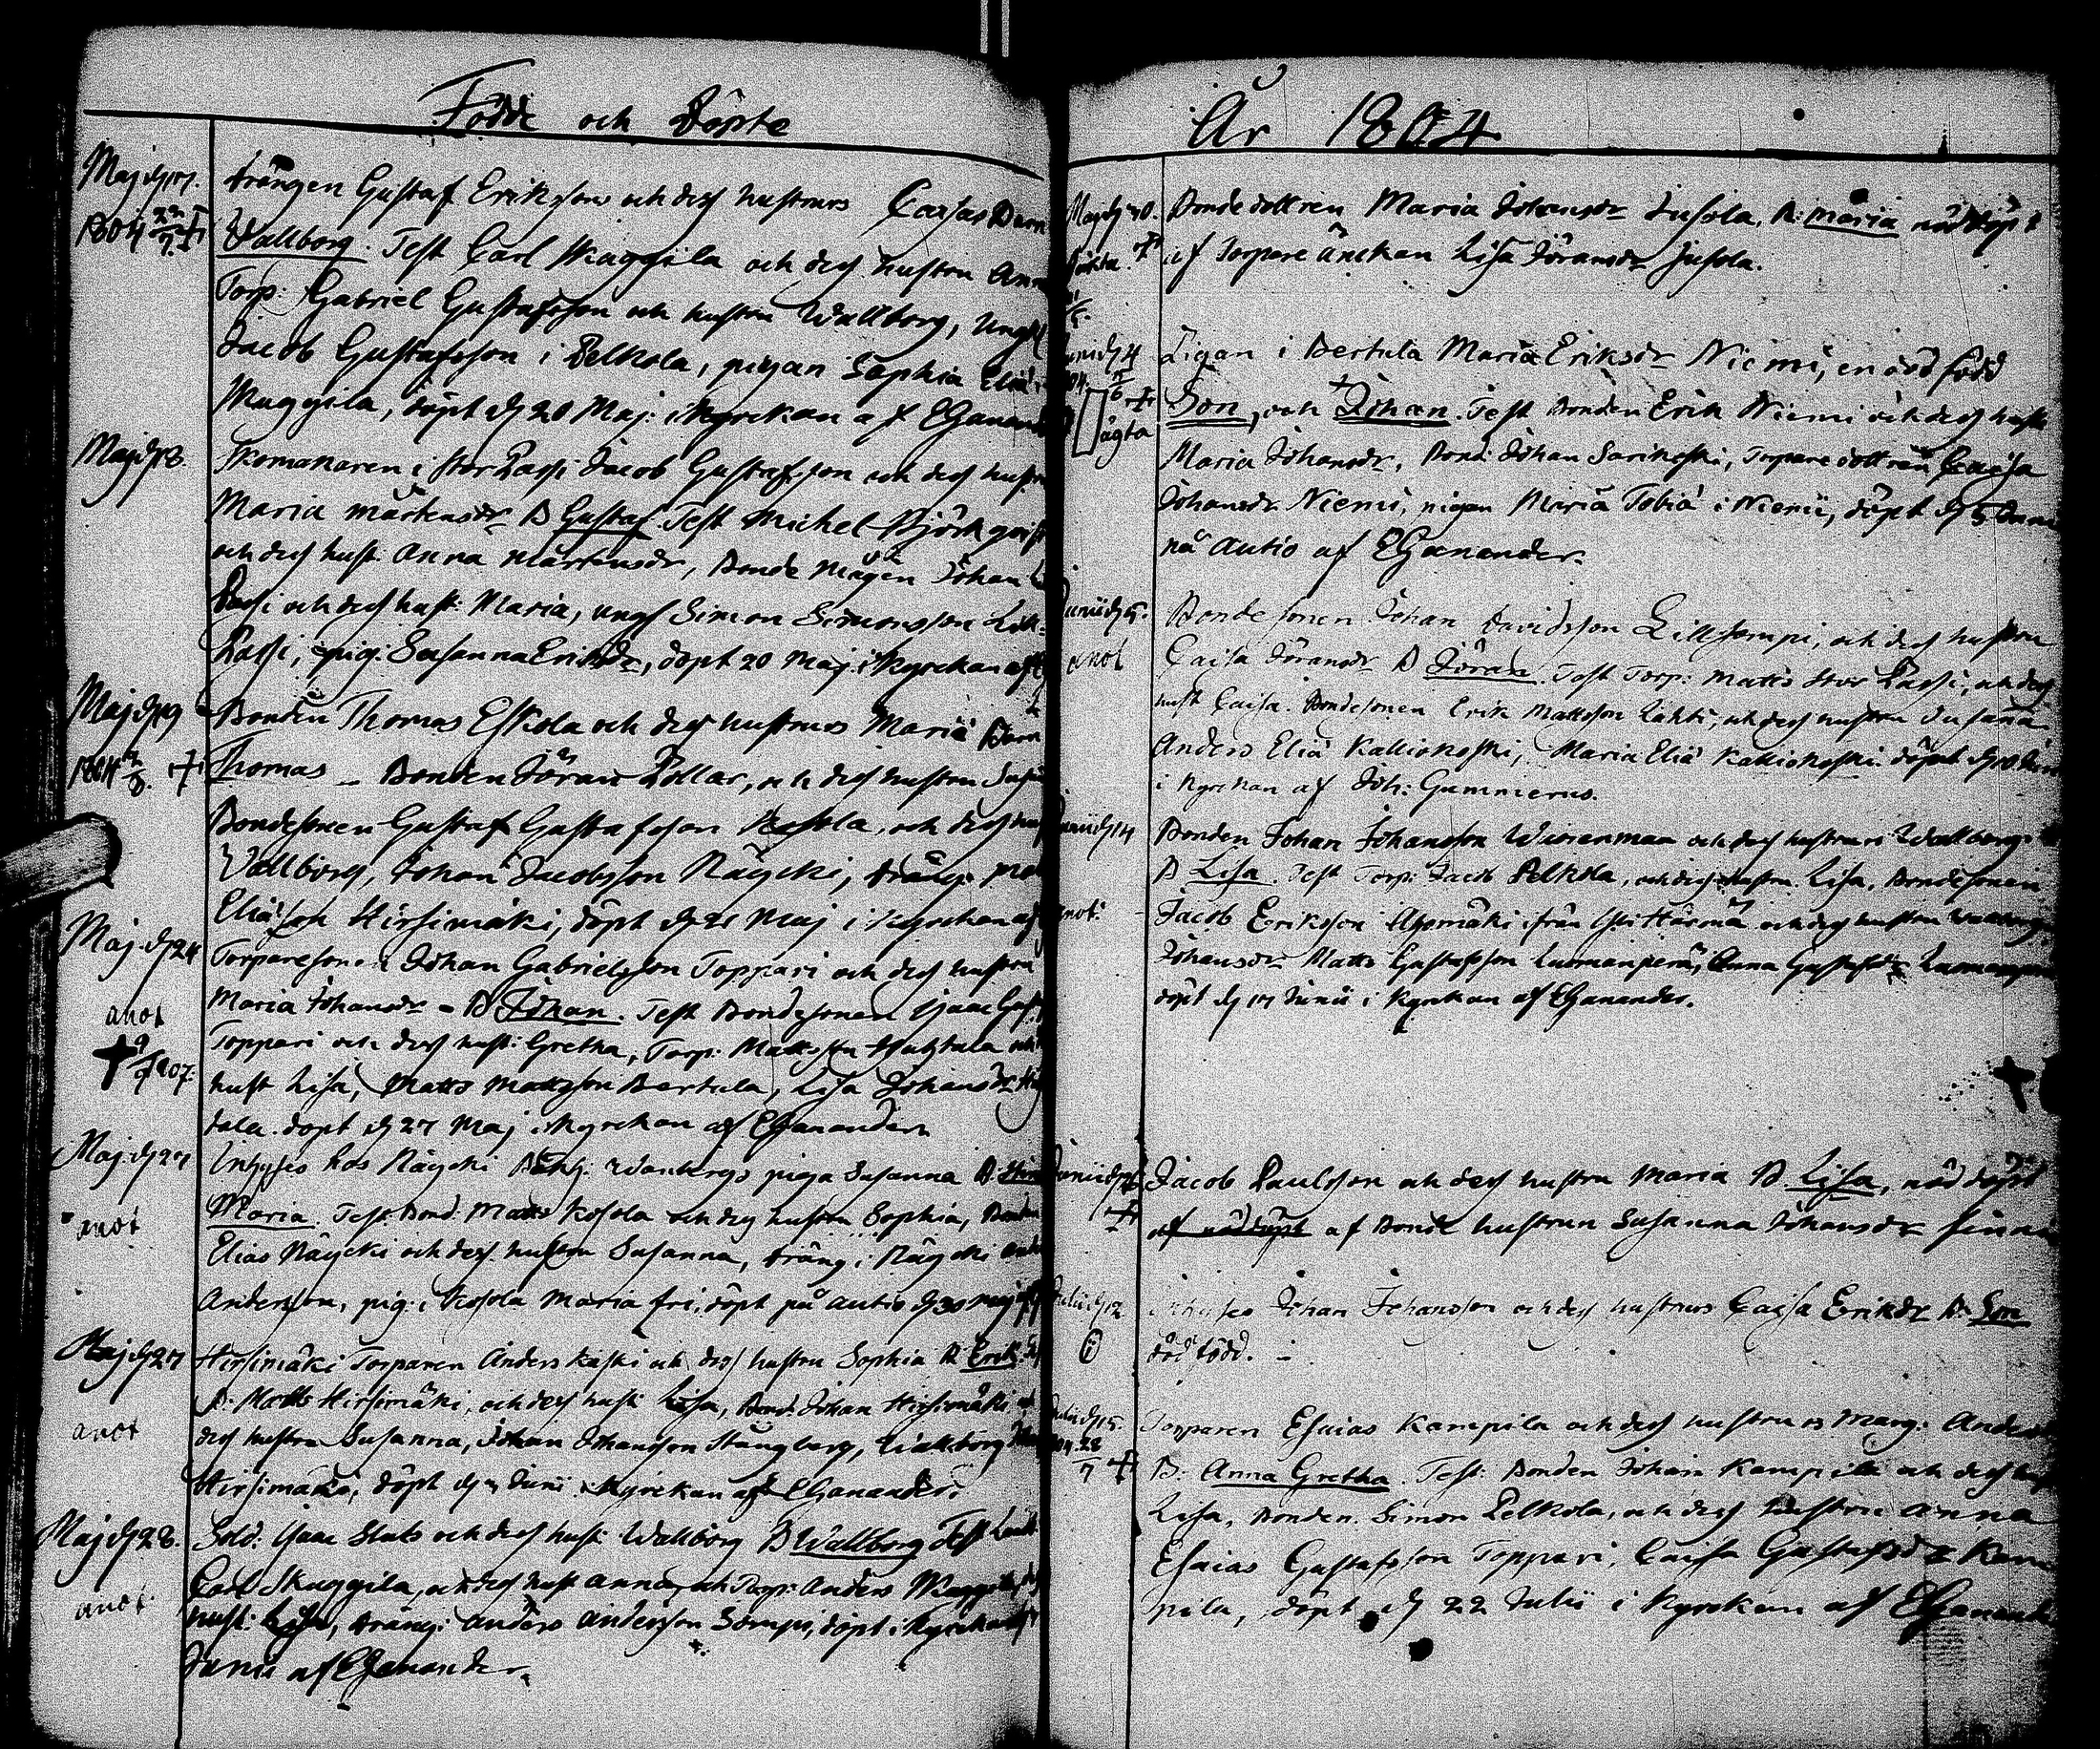 Födde och Döpte
Maj d. 17.
1804 22/7 +
drängen Gustaf Eriksson och dess hustrus Caisas Barn
Wallborg. Test Carl Skaggila och dess hustru Anna
Torp: Gabriel Gustafsson och hustru Wallborg, Ungk
Jacob Gustafsson i Pelkola, pigan Sophia Eliä
Skaggila, döpt d. 20 Maj: i Kyrckan af EGanand
Maj d. 18.
Skomakaren i stor Passi Jacob Gustafsson och dess hustr
Maria Mårtensdr B Gustaf Test Michel Björkqvist
och dess hust: Anna Mårtensdr, Bonde Mågen Johan
Passi och dess hust: Maria, ungk Simon Simonsson
Passi, pig: Susanna Eriksdr, döpt 20 Maj: i Kyrckan af
Maj d. 19
1804 +
Bonden Thomas Eskola och dess hustrus Maria Barn
Thomas – Bonden Jöran Pollar, och dess hustru
Bondesonen Gustaf Gustafsson Kosola, och dess
Wallborg, Johan Jacobsson Näycki, dräng
Eliässon Hirsimäki, döpt d. 21 Maj i Kyrckan af
Maj d. 24
anot
+ 1807.
Torparesonen Johan Gabrielsson Toppari och dess hustru
Maria Johansdr – B Johan. Test Bondesonen Isaac
Toppari och dess hust: Gretha, Torp: Matts
hust Lisa, Matts Mattsson Bertula, Lisa Johansdr
döpt d. 27 Maj i Kyrckan af EGanander
Maj d. 27
anot
Inhyses hos Näycki piga Susanna B.
Maria. Test: Bond: Matts Kosola och dess hustru Sophia, Bonden
Elias Näycki och dess hustru Susanna, dräng i Näycki
Andersson, pig: i Kosola Maria döpt på Autio d. 30 Maj af
Maj d. 27
anot
Hirsimäki Torparen Anders Kaski och dess hustru Sophia B. Erik.
B. Matts Hirsimäki, och dess hust: Lisa, Bond: Johan Hirsimäki
dess hustru Susanna, Johan Johansson Stångberg, Wallborg
Hirsimäki, döpt d. Junii i Kyrckan af EGanander.
Maj d. 28.
anot
Sold: Isaac Stuts och dess hust: Wallborg B Wallborg Test
Carl Skaggila, och dess hust Anna, och Torp: Anders Skaggila
hust: Lisa, dräng: Anders Andersson Sompi, döpt i Kyrckan
Junii af EGanander.
År 1804
Maj d. 30.
Bonde dottren Maria Johansdr Jusola, B: Maria nöddöpt
af Torpare änckan Lisa Jöransdr Jusola.
Junii d. 4
oägta
Pigan i Bertula Maria Eriksdr Niemi, en död född
Son, och Johan. Test Bonden Erik Niemi och dess hust
Maria Johansdr, Bond: Johan Sarikoski, Torpare dottren Caisa
Johansdr Niemi, pigan Maria Tobiä i Niemi, döpt d. 5 Junii
på Autio af EGanander.
Junii d. 5.
anot
Bonde sonen Johan Davidsson Lillsompi, och dess hustru
Caisa Jöransdr B Jöran. Test Torp: Matts Stor Passi, och dess
hust Caisa. Bondesonen Erik Mattsson Lahti, och dess hustru Susana
Anders Eliä Kalliokoski, Maria Eliä Kalliokoski döpt d. 10 Junii
i Kyrckan af Joh: Gummerus.
Junii d. 14
anot:
Bonden Johan Johansson Wuorenmaa och dess hustrus Wallborgs
B Lisa. Test Torp: Jacob Pelkola, och dess hustru Lisa, Bondesonen
Jacob Eriksson ifrån Härmä och dess hustru Wallborg
Johansdr Matts Gustafsson Luomanperä, Anna Gustafsdr
döpt d. 17 Junii i Kyrckan af EGanander.
+
Junii d.
+
Jacob Paulsson och dess hustru Maria B. Lisa, nöd döpt
af nöddöpt af Bonde hustrun Susanna Johansdr
Julii d. 12
Inhyses Johan Johansson och dess hustrus Caisa Eriksdr B. Son
död född. –
Julii d. 15.
28/7 +
Torparen Esaias Kampila och dess hustrus Marg: Anders
B: Anna Gretha. Test: Bonden Johan Kampila och dess hust
Lisa, Bonden Simon Pelkola, och dess hustru Anna
Esaias Gustafsson Toppari, Caisa Gustafsdr Kam
pila, döpt d. 22 Julii i Kyrckan af EGanander